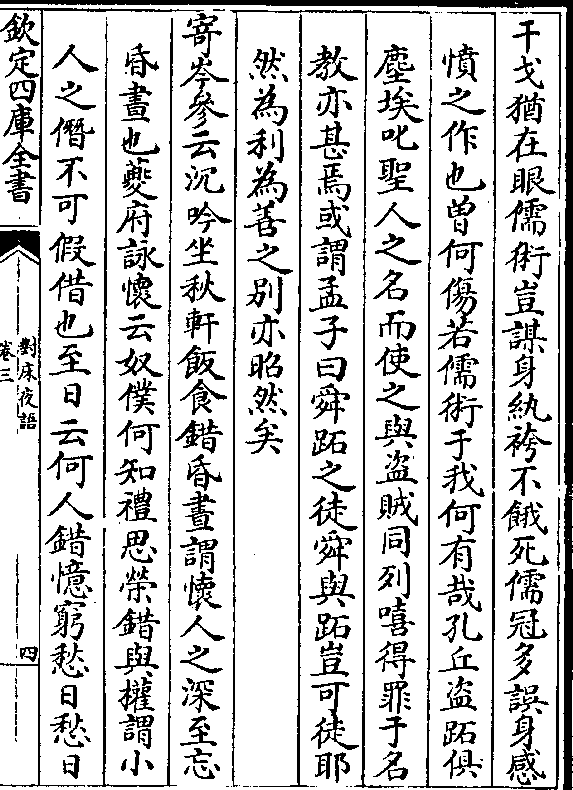 干戈猶在眼儒術豈謀身紈袴不餓死儒冠多誤身感
憤之作也曽何傷若儒術于我何有哉孔丘盜跖俱
塵埃叱聖人之名而使之與盜賊同列嘻得罪于名
教亦甚焉或謂孟子曰舜跖之徒舜與跖豈可徒耶
然為利為善之别亦昭然矣
寄岑參云沉吟坐秋軒飯食錯昏晝謂懷人之深至忘
昏晝也夔府詠懷云奴僕何知禮恩榮錯與權謂小
人之僭不可假借也至日云何人錯憶窮愁日愁日
欽定四庫全書
對床夜語
卷三
四